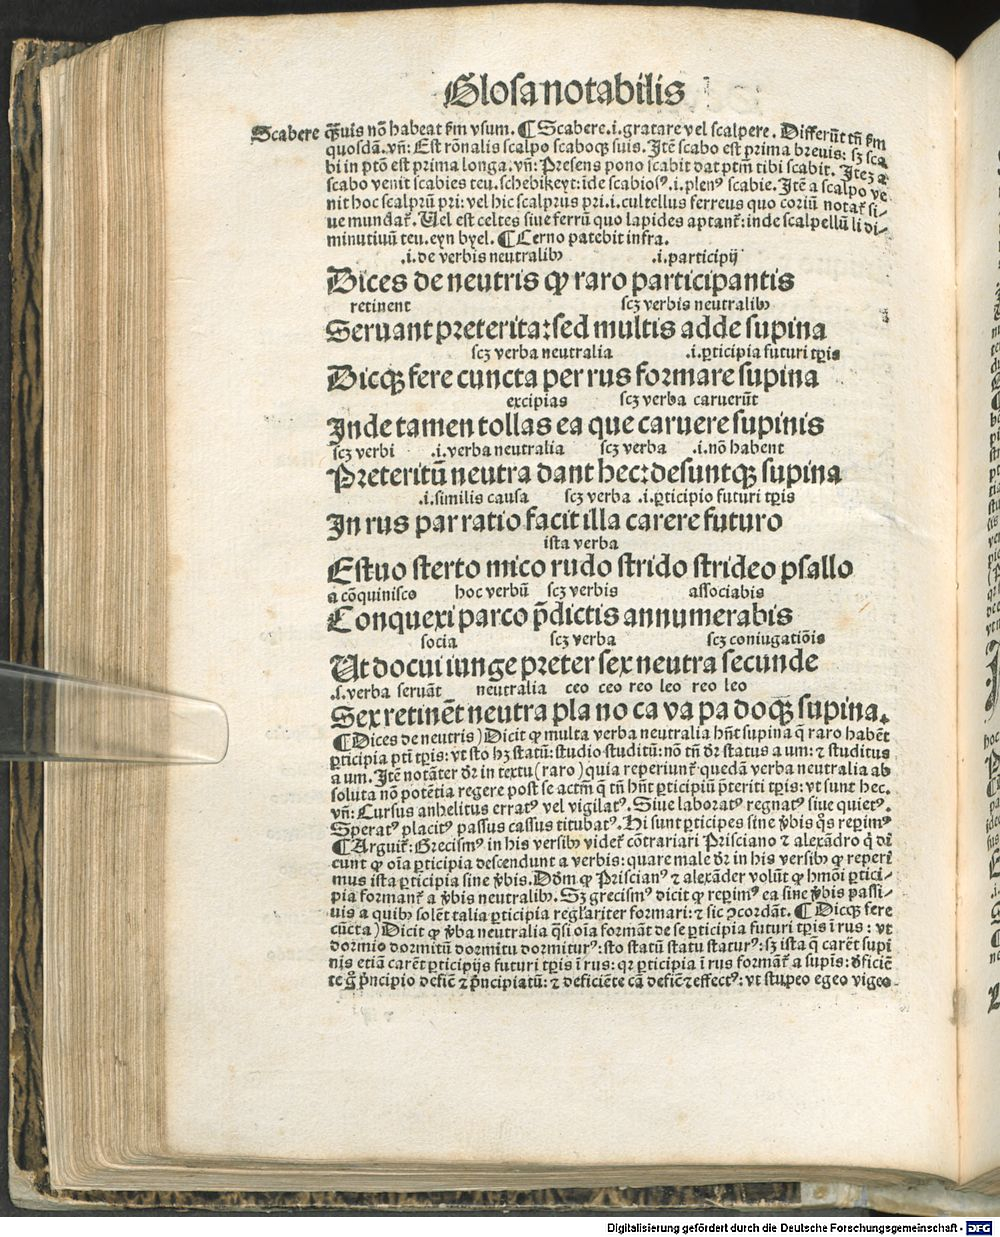 Glosa notabilis
Scabere q̃uis nõ habeat ẜm vsum. ¶ Scabere .i. gratare vel scalpere. Differũt tñ ẜm
quosdã. vñ: Est rõnalis scalpo scaboqꝫ suis. Itẽ scabo est prima breuis: sꝫ sca
bi in ptõ est prima longa. vñ: Presens pono scabit dat ptm̃ tibi scabit. Iteꝫ a
scabo venit scabies teu. schebikeyt: ĩde scabiosꝰ .i. plenꝰ scabie. Itẽ a scalpo ve
nit hoc scalprũ pri: vel hic scalprus pri .i. cultellus ferreus quo coriũ notat̃ si⸗
ue mundat̃. Uel est celtes siue ferrũ quo lapides aptant̃: inde scalpellũ li di⸗
minutiuũ teu. eyn byel. ¶ Cerno patebit infra.
.i. de verbis neutralibꝫ .i. participij
Dices de neutris ꝙ raro participantis
retinent scꝫ verbis neutralibꝫ
Seruant preterita: sed multis adde supina
scꝫ verba neutralia .i. ꝑticipia futuri tꝑis
Dicqꝫ fere cuncta per rus formare supina
excipias scꝫ verba caruerũt
Inde tamen tollas ea que caruere supinis
scꝫ verbi .i. verba neutralia scꝫ verba .i. nõ habent
Preteritũ neutra dant hec: desuntqꝫ supina
.i. similis causa scꝫ verba .i. ꝑticipio futuri tꝑis
In rus par ratio facit illa carere futuro
ista verba
Estuo sterto mico rudo strido strideo psallo
a cõquinisco hoc verbũ scꝫ verbis associabis
Conquexi parco p̃dictis annumerabis
socia scꝫ verba scꝫ coniugatiõis
Ut docui iunge preter sex neutra secunde
.s. verba seruãt neutralia ceo ceo reo leo reo leo
Sex retinẽt neutra pla no ca va pa doqꝫ supina.
¶ Dices de neutris) Dicit ꝙ multa verba neutralia hñt supina q̃ raro habẽt
ꝑticipia ptĩ tꝑis: vt sto hꝫ statũ: studio studitũ: nõ tñ dr̃ status a um: ⁊ studitus
a um. Itẽ notãter dr̃ in textu (raro) quia reperiunt̃ quedã verba neutralia ab
soluta nõ potẽtia regere post se actm̃ q̃ tñ hñt ꝑticipiũ p̃teriti tꝑis: vt sunt hec.
vñ: Cursus anhelitus erratꝰ vel vigilatꝰ. Siue laboratꝰ regnatꝰ siue quietꝰ.
Speratꝰ placitꝰ passus cassus titubatꝰ. Hi sunt ꝑticipes sine v̾bis q̃s reperimꝰ
¶ Arguit̃: Grecismꝰ in his versibꝫ videt̃ cõtrariari Prisciano ⁊ alexãdro q̃ di
cunt ꝙ oĩa ꝑticipia descendunt a verbis: quare male dr̃ in his versibꝫ ꝙ reperi
mus ista ꝑticipia sine v̾bis. Dõm ꝙ Priscianꝰ ⁊ alexãder volũt ꝙ hmõi ꝑtici⸗
pia formant̃ a v̾bis neutralibꝫ. Sꝫ grecismꝰ dicit ꝙ reperimꝰ ea sine v̾bis passi⸗
uis a quibꝫ solẽt talia ꝑticipia regl̃ariter formari: ⁊ sic ꝯcordãt. ¶ Dicqꝫ fere
cũcta) Dicit ꝙ v̾ba neutralia q̃si oĩa formãt de se ꝑticipia futuri tꝑis ĩ rus: vt
dormio dormitũ dormitu dormiturꝰ: sto statũ statu staturꝰ: sꝫ ista q̃ carẽt supi
nis etiã carẽt ꝑticipijs futuri tꝑis ĩ rus: qr ꝑticipia ĩ rus formãt̃ a supis: d̾ficiẽ
te g̊ p̃ncipio deficit ⁊ p̃ncipiatũ: ⁊ deficiẽte cã deficit ⁊ effectꝰ: vt stupeo egeo vigeo
Digitalisierung gefördert durch die Deutsche Forschungsgemeinschaft - DFG